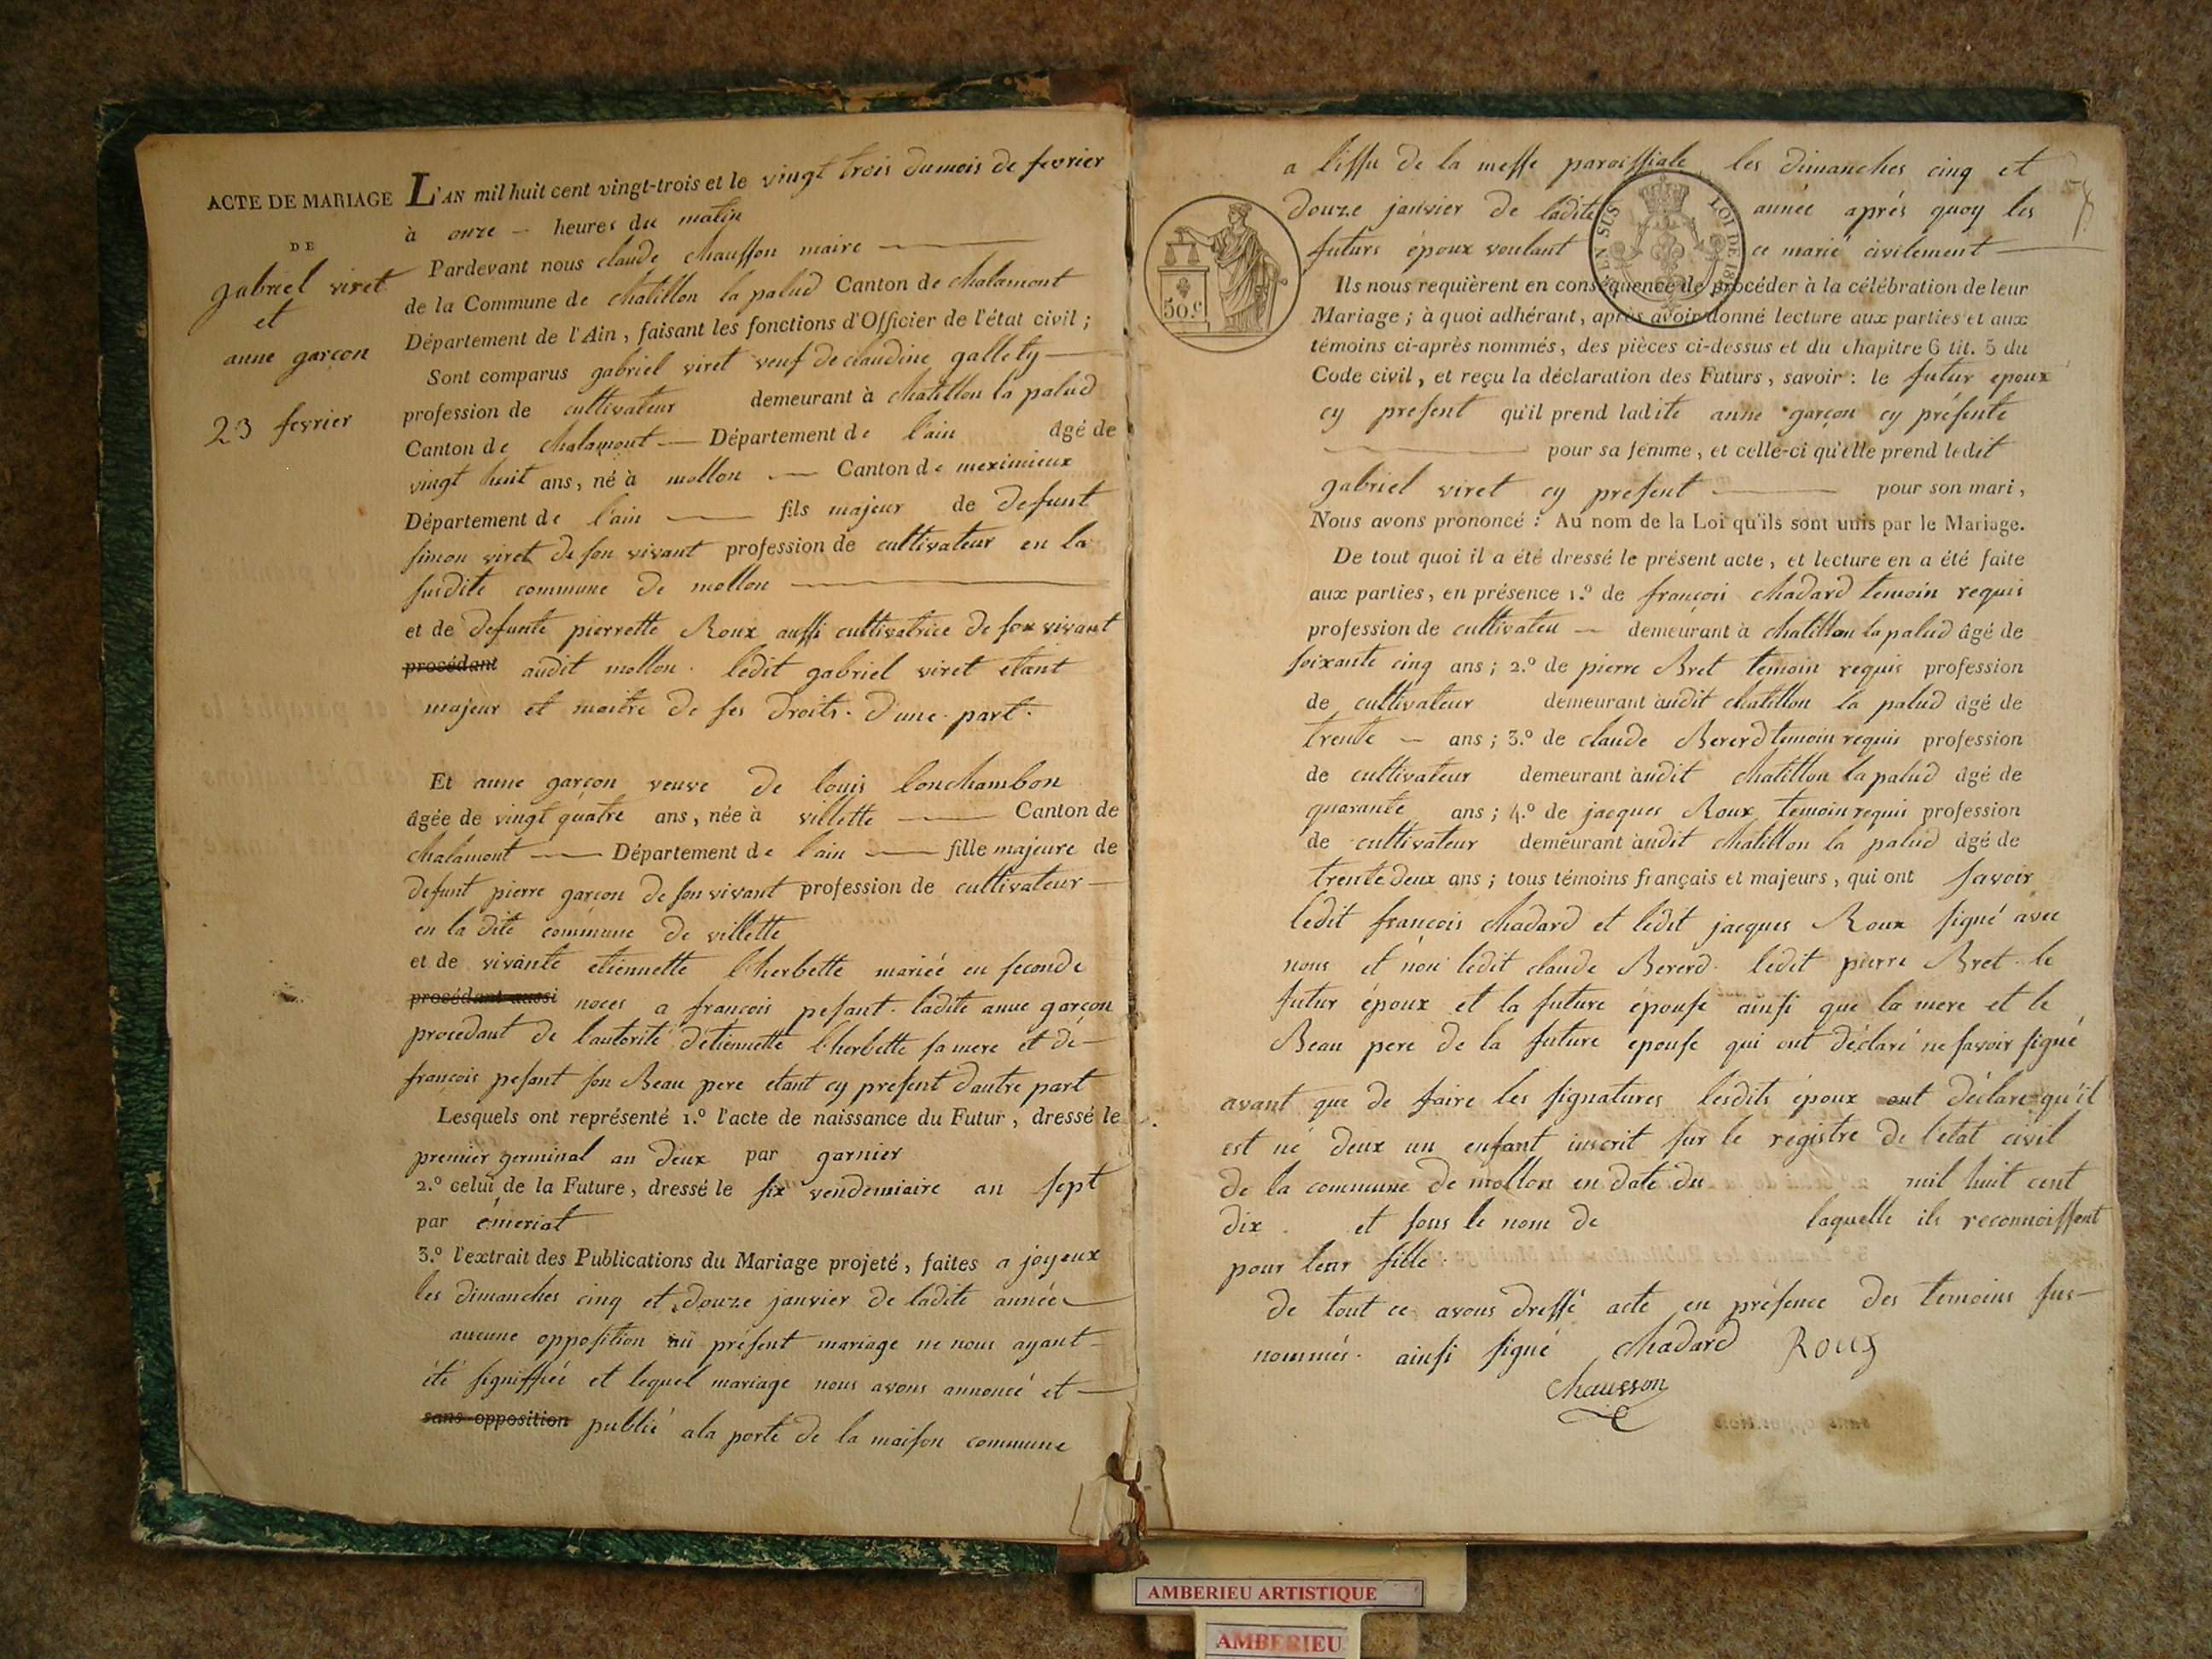 ACTE DE MARIAGE
DE
gabriel viret
et
anne garçon
23 fevrier
L'AN mil huit cent vingt-trois et le vingt trois du mois de fevrier
à onze heures du matin
Pardevant nous claude chausson maire
de la Commune de chatillon la palud Canton de chalamont
Département de l'Ain, faisant les fonctions d'Officier de l'état civil ;
Sont comparus gabriel viret veuf de claudine gallety
profession de cultivateur demeurant à chatillon la palud
Canton de chalamont Département de l'ain âgé de
vingt huit ans, né à mollon Canton de meximieux
Département de l'ain fils majeur de defunt
simon viret de son vivant profession de cultivateur en la
susdite commune de mollon
et de defunte pierrette Roux aussi cultivatrice de son vivant
procédant audit mollon. ledit gabriel viret etant
majeur et maitre de ses droits. d'une part.
Et anne garçon veuve de louis lonchambon
âgée de vingt quatre ans, née à villette Canton de
chalamont Département de l'ain fille majeure de
defunt pierre garçon de son vivant profession de cultivateur
en la dite commune de villette
et de vivante etiennette l'herbette mariée en seconde
procédant aussi noces a françois pesant. ladite anne garçon
procedant de l'autorité d'etiennette l'herbette sa mere et de
françois pesant son Beau pere etant cy présent d'autre part
Lesquels ont représenté 1.º l'acte de naissance du Futur, dressé le
premier germinal an deux par garnier
2.º celui de la Future, dressé le six vendemiaire an sept
par émeriat
3.º l'extrait des Publications du Mariage projeté, faites a joyeux
les dimanches cinq et douze janvier de ladite année
aucune opposition au présent mariage ne nous ayant
été signiffiée et lequel mariage nous avons annoncé et
sans opposition publié a la porte de la maison commune
a l'issu de la messe paroissiale les dimanches cinq et
douze janvier de ladite année aprés quoy les
futurs époux voulant ce marié civilement
EN SUS LOI DE
50.c
Ils nous requièrent en conséquence de procéder à la célébration de leur
Mariage ; à quoi adhérant, après avoir donné lecture aux parties et aux
témoins ci-après nommés, des pièces ci-dessus et du chapitre 6 tit. 5 du
Code civil, et reçu la déclaration des Futurs, savoir : le futur epoux
cy present qu'il prend ladite anne garçon cy présente
pour sa femme, et celle-ci qu'elle prend ledit
gabriel viret cy present pour son mari,
Nous avons prononcé : Au nom de la Loi qu'ils sont unis par le Mariage.
De tout quoi il a été dressé le présent acte, et lecture en a été faite
aux parties, en présence 1.º de françois chadard temoin requis
profession de cultivateu demeurant à chatillon la palud âgé de
soixante cinq ans ; 2.º de pierre Bret temoin requis profession
de cultivateur demeurant audit chatillon la palud âgé de
trente ans ; 3.º de claude Bererd temoin requis profession
de cultivateur demeurant audit chatillon la palud âgé de
quarante ans ; 4.º de jacques Roux temoin requis profession
de cultivateur demeurant audit chatillon la palud âgé de
trente deux ans ; tous témoins français et majeurs, qui ont savoir
ledit françois chadard et ledit jacques Roux signé avec
nous et non ledit claude Bererd. ledit pierre Bret. le
futur époux et la future épouse ainsi que la mere et le
Beau pere de la future epouse qui ont déclaré ne savoir signé
avant que de faire les signatures lesdits époux ont déclaré qu'il
est né deux un enfant inscrit sur le registre de l'état civil
de la commune de mollon en date du mil huit cent
dix et sous le nom de laquelle ils reconnoissent
pour leur fille.
de tout ce avons dressé acte en présence des temoins sus-
nommés. ainsi signé chadard Roux
Chausson
AMBERIEU ARTISTIQUE
AMBERIEU